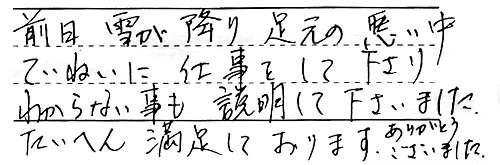 前日 雪が 降り 足元の 悪い中
ていねいに 仕事をして下さり
わからない事も 説明して下さいました.
たいへん 満足しております. ありがとうございました.